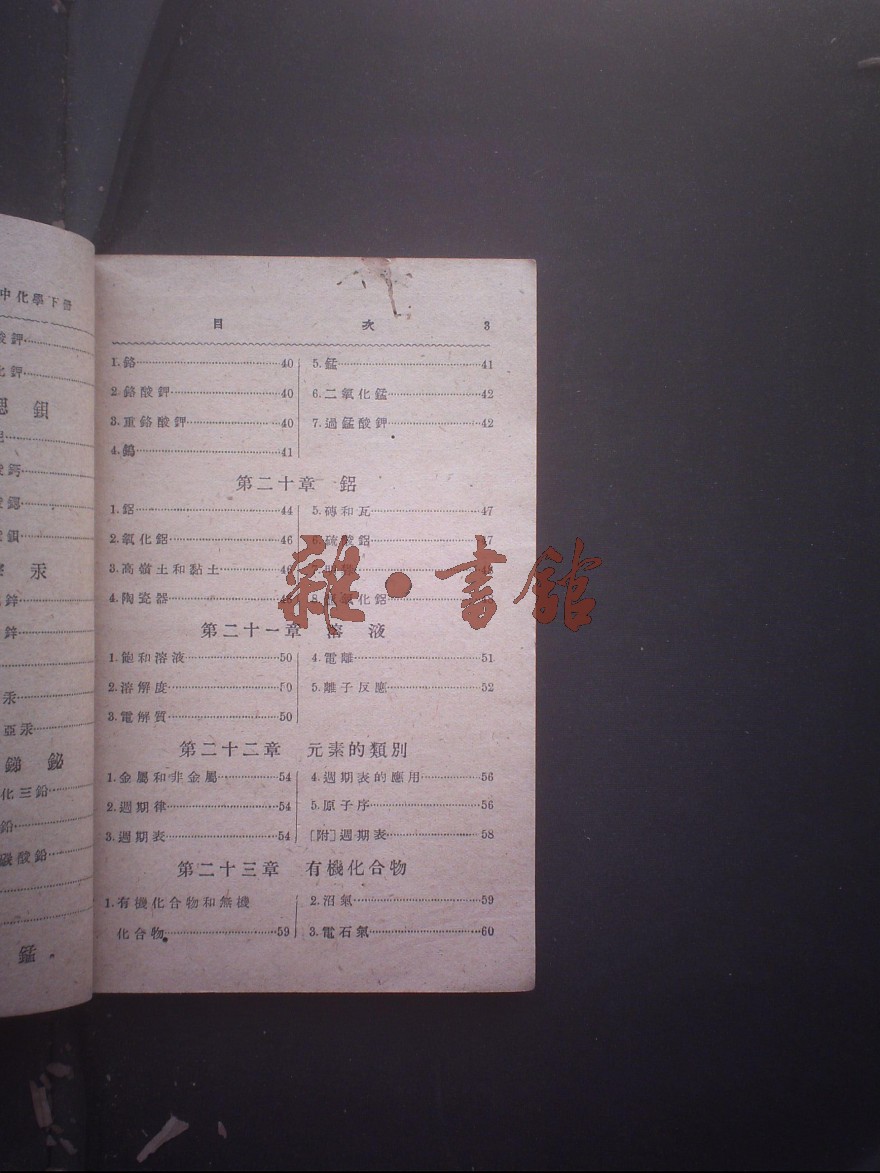 中化學下冊
酸鉀
化鉀
鋇
酸鈣
酸鍶
酸鋇
汞
鋅
鋅
汞
亞汞
銻 鉍
化三鉛
鉛
碳酸鉛
錳
目 次 3
1.鉻 40
2.鉻酸鉀 40
3.重鉻酸鉀 40
4.鎢 41
5.錳 41
6.二氧化錳 42
7.過錳酸鉀 42
第二十章 鋁
1.鋁 44
2.氧化鋁 46
3.高嶺土和黏土 46
4.陶瓷器
5.磚和瓦 47
6.硫酸鋁 47
化鋁
第二十一章 溶液
1.飽和溶液 50
2.溶解度 50
3.電解質 50
4.電離 51
5.離子反應 52
第二十二章 元素的類別
1.金屬和非金屬 54
2.週期律 54
3.週期表 54
4.週期表的應用 56
5.原子序 56
[附]週期表 58
第二十三章 有機化合物
1.有機化合物和無機
化合物 59
2.沼氣 59
3.電石氣 60
雜·書館